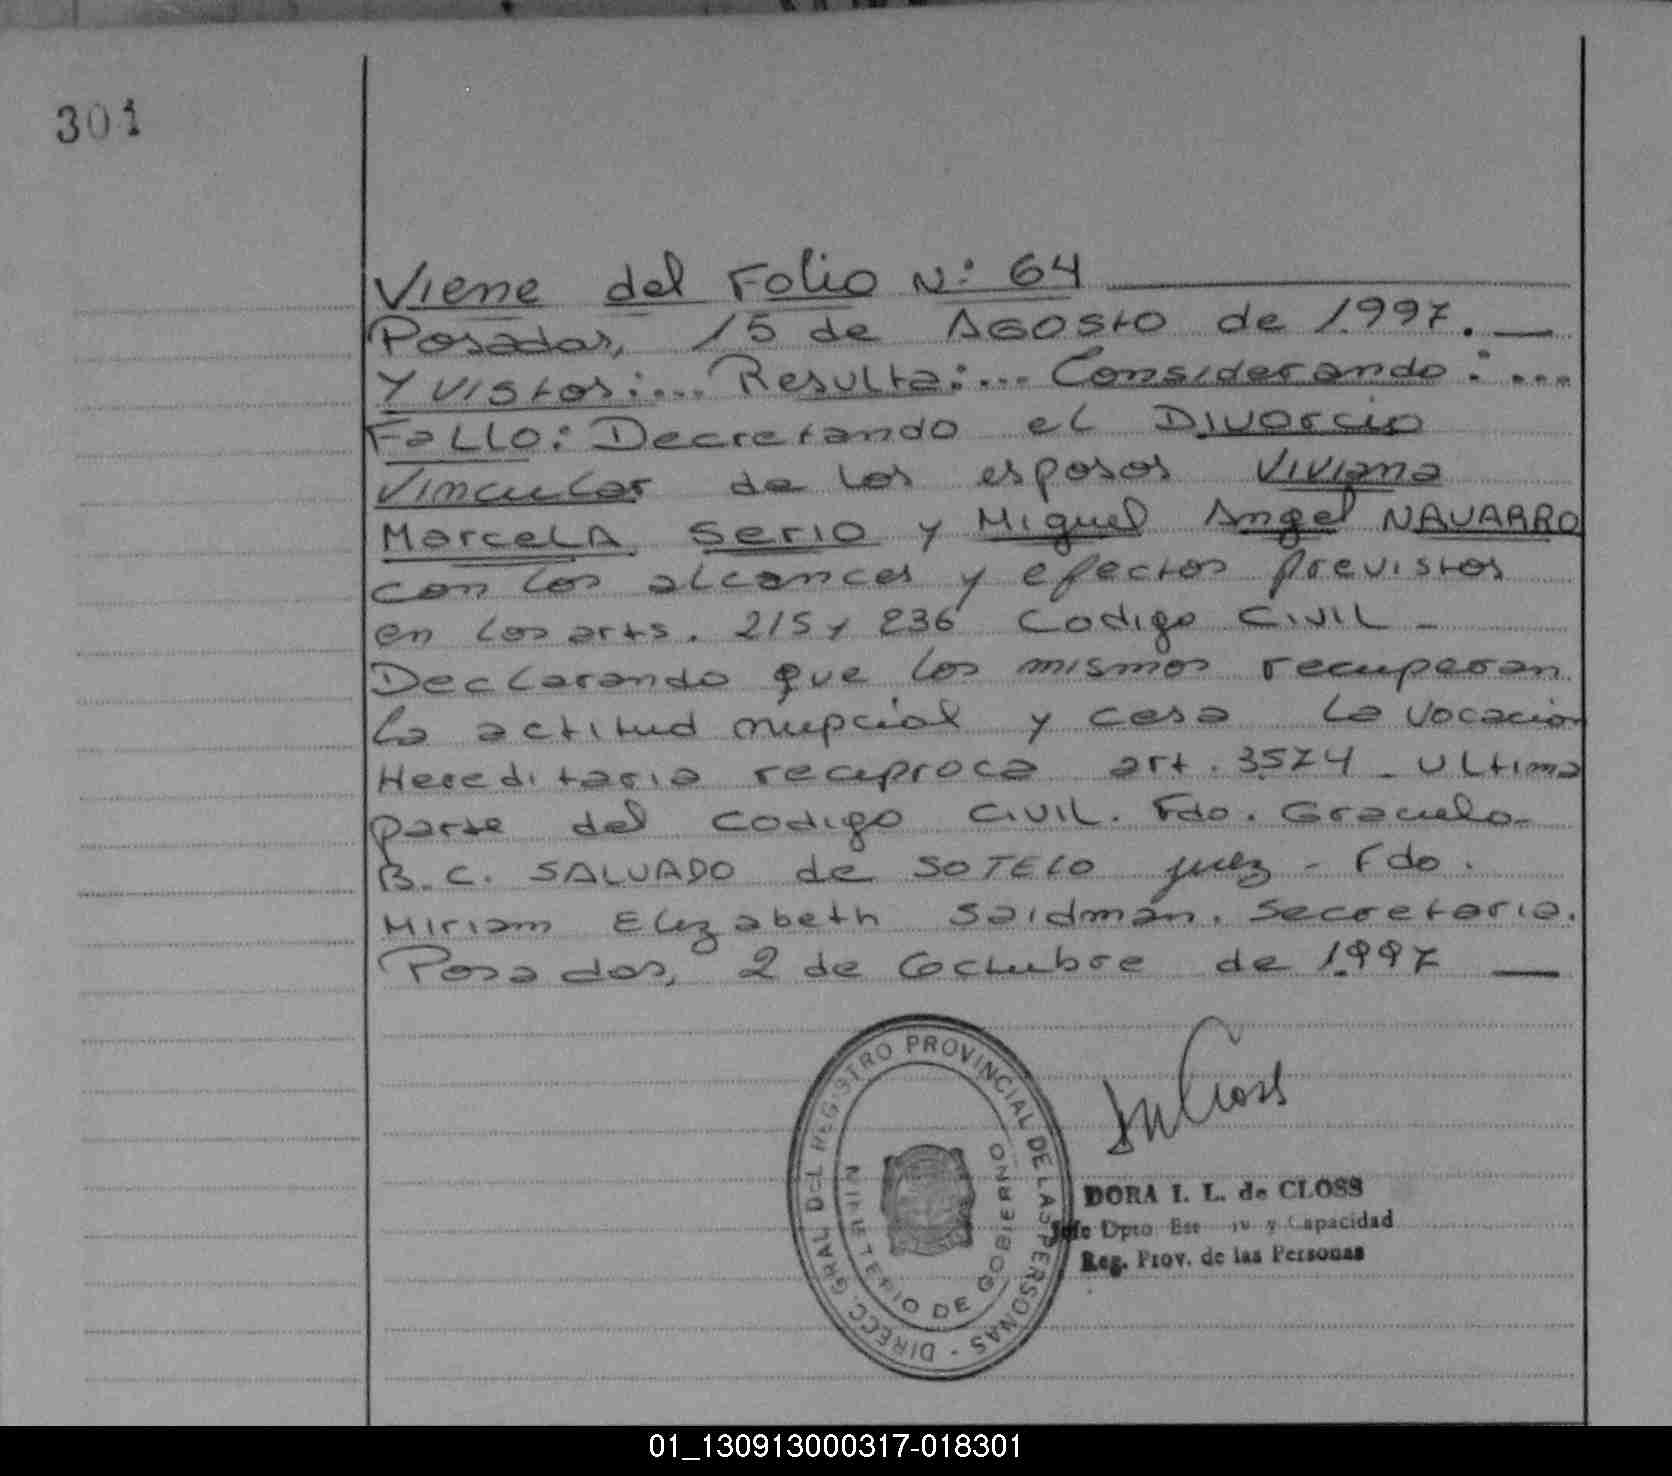 301
Viene del Folio N: 64
Posadas, 15 de AGOSTO de 1.997.
Y VISTOS:... Resulta:... Considerando:...
FaLLo: Decretando el Divorcio
Vincular de los esposos Viviana
MarceLA Serio y Miguel Angel NAVARRO
con los alcances y efectos previstos
en los arts. 215 y 236 Codigo CiviL -
Declarando que los mismos recuperan
la actitud nupcial y cesa la vocacion
Hereditaria reciproca art. 3574 - ultima
parte del codigo CiviL. Fdo. Graciela
B.C. SALVADO de SOTELO juez - Fdo.
Miriam Elizabeth Saidman. Secretaria.
Posadas, 2 de Octubre de 1.997
DIRECC. GRAL DEL REGISTRO PROVINCIAL DE LAS PERSONAS -
MINISTERIO DE GOBIERNO
DORA I. L. de CLOSS
Jefe Dpto y Capacidad
Reg. Prov. de las Personas
01_130913000317-018301